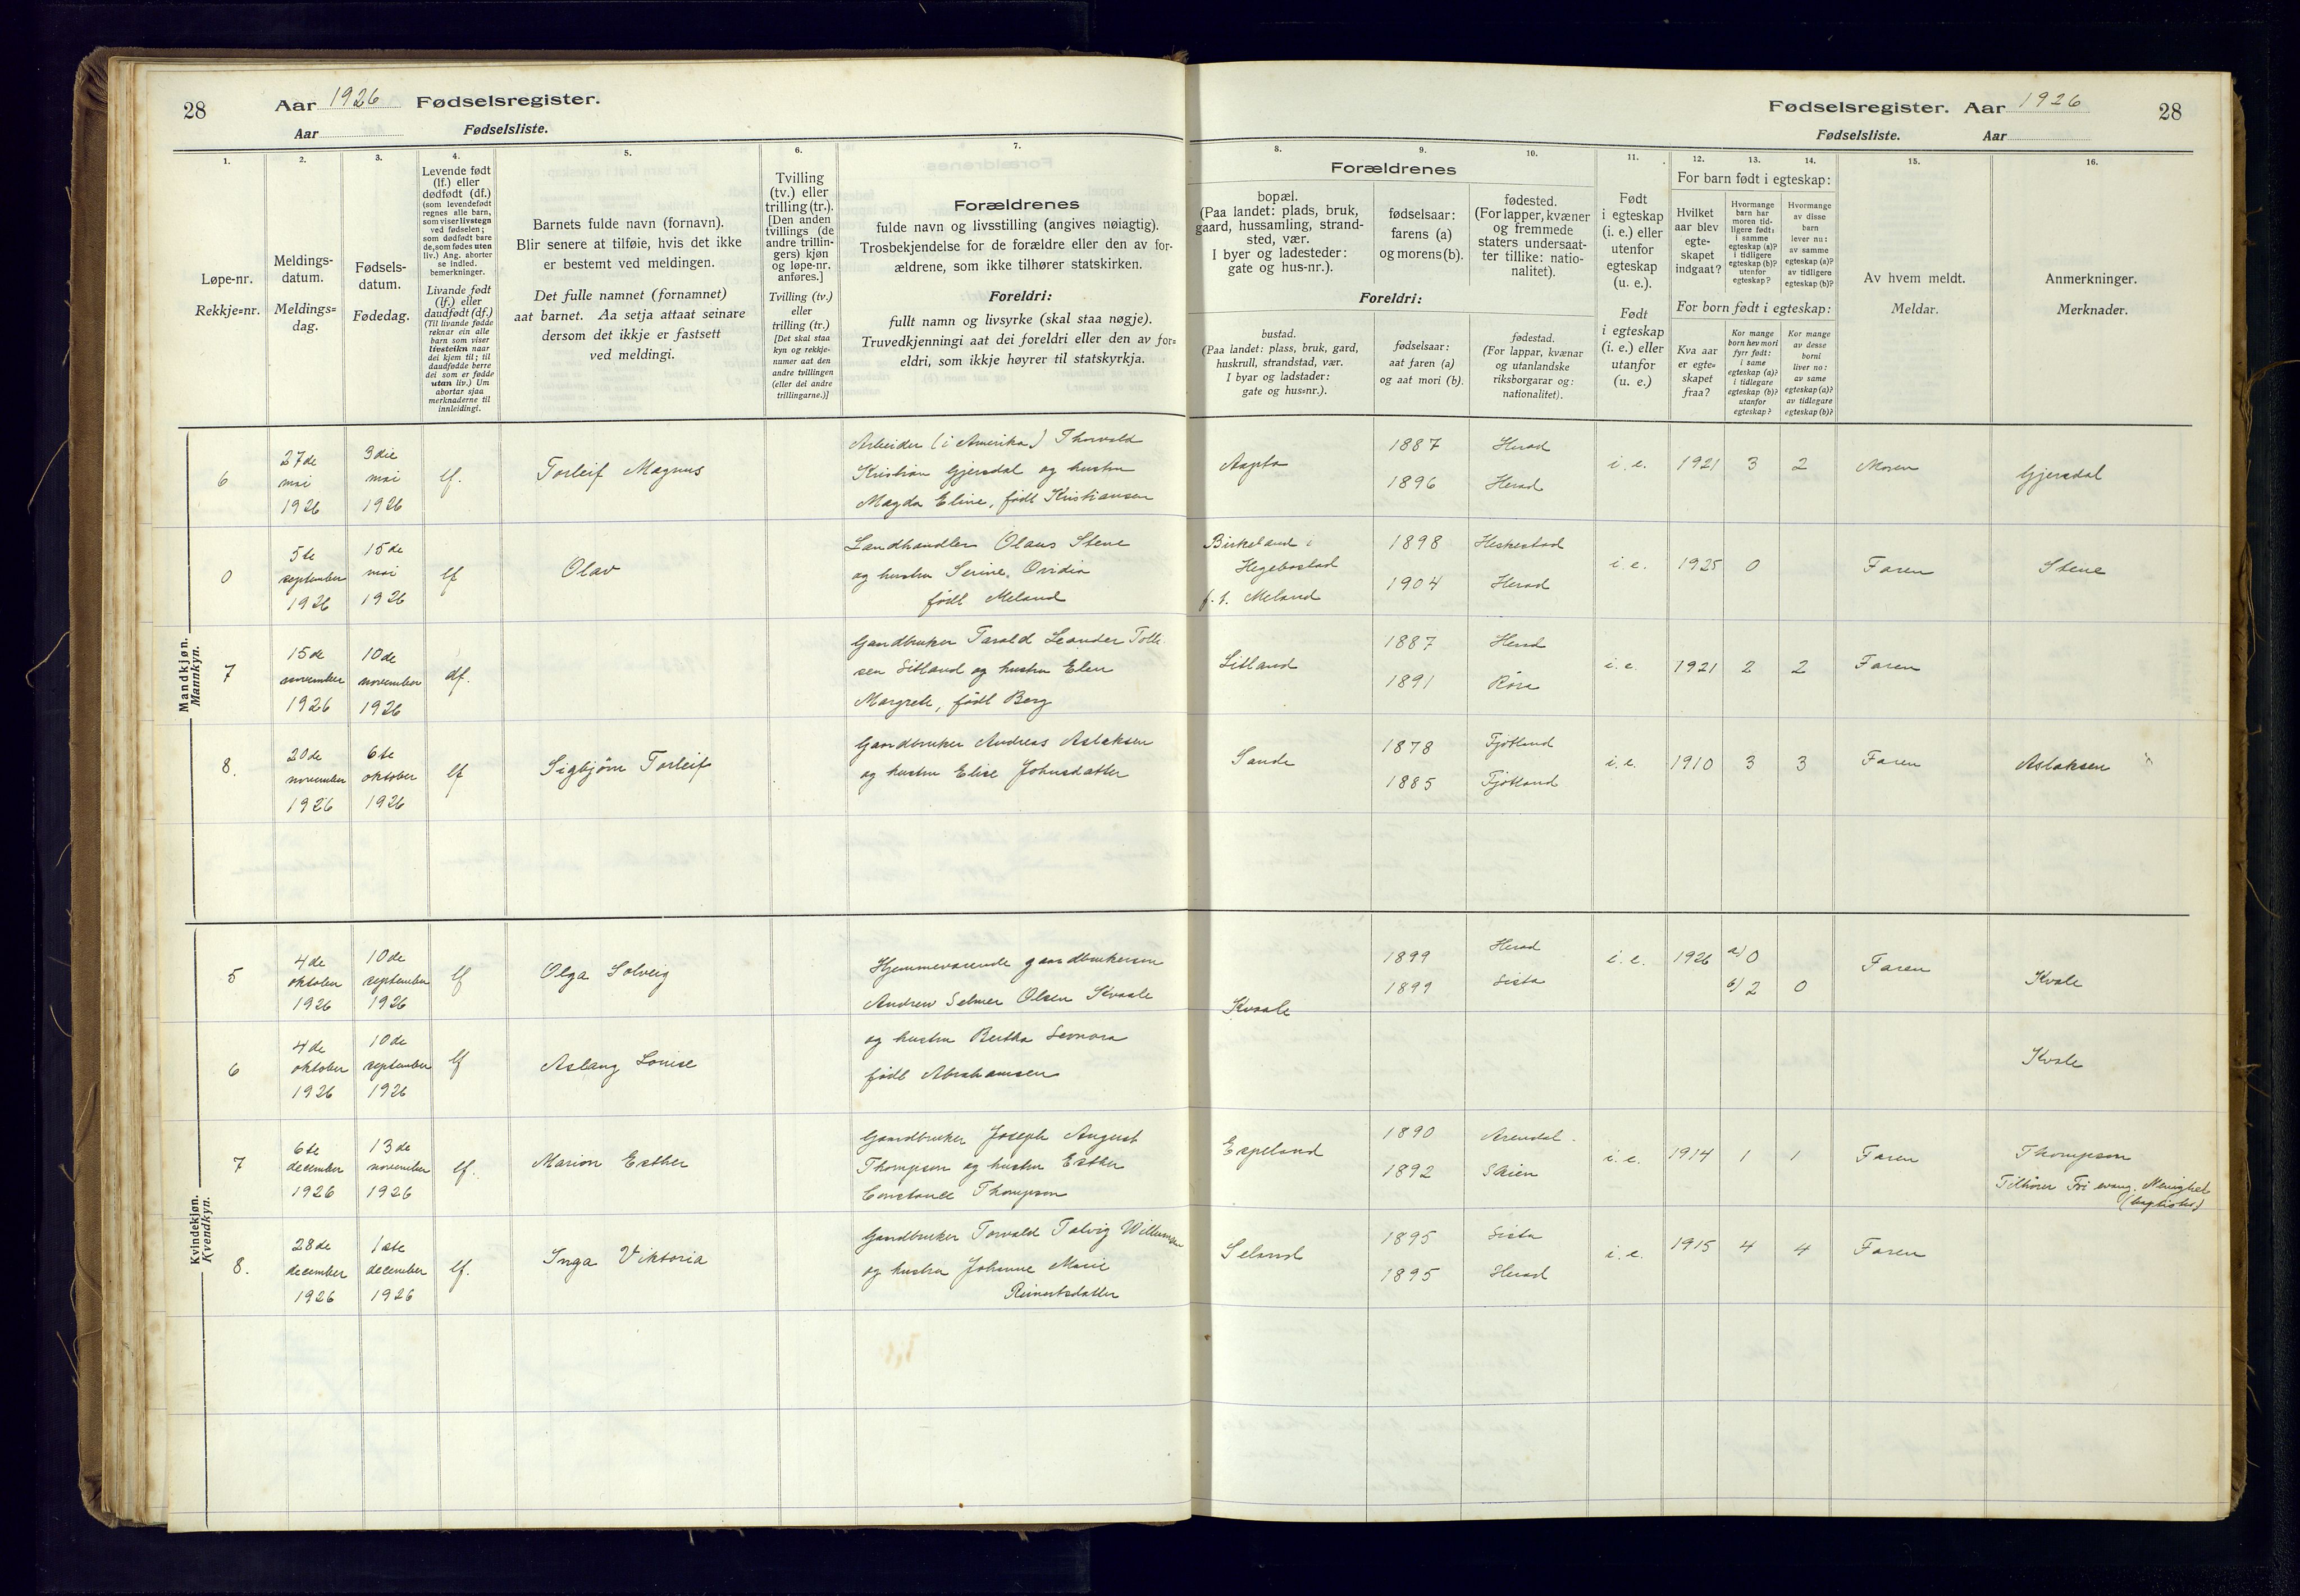 28
Aar 1926 Fødselsregister.
Aar Fødselsliste.
Fødselsregister. Aar 1926
28
Fødselsliste. Aar
1.
Løpe-nr.
Rekkje=nr.
2.
Meldings-
datum.
Meldings=
dag.
3.
Fødsels-
datum.
Fødedag.
4.
Levende født
(lf.) eller
dødfødt (df.)
(som levendefødt
regnes alle barn,
som viser livstegn
ved fødselen;
som dødfødt bare
de, som fødes uten
liv.) Ang. aborter
se indled.
bemerkninger.
Livande født
(lf.) eller
daudfødt (df.)
(Til livande fødde
reknar ein alle
barn som viser
livsteikn naar
dei kjem til; til
daudfødde berre
dei som er fødde
utan liv.) Um
abortar sjaa
merknaderne til
innleidingi.
5.
Barnets fulde navn (fornavn).
Blir senere at tilføie, hvis det ikke
er bestemt ved meldingen.
Det fulle namnet (fornamnet)
aat barnet. Aa setja attaat seinare
dersom det ikkje er fastsett
ved meldingi.
6.
Tvilling
(tv.) eller
trilling (tr.).
[Den anden
tvillings (de
andre trillin-
gers) kjøn
og løpe-nr.
anføres.]
Tvilling (tv.)
eller
trilling (tr.)
[Det skal staa
kyn og rekkje-
numer aat den
andre tvillingen
(eller dei andre
trillingarne.)]
7.
Forældrenes
fulde navn og livsstilling (angives nøiagtig).
Trosbekjendelse for de forældre eller den av for-
ældrene, som ikke tilhører statskirken.
Foreldri:
fullt namn og livsyrke (skal staa nøgje).
Truvedkjenningi aat dei foreldri eller den av for=
eldri, som ikkje høyrer til statskyrkja.
Forældrenes
8.
bopæl.
(Paa landet: plads, bruk,
gaard, hussamling, strand-
sted, vær.
I byer og ladesteder:
gate og hus-nr.).
9.
fødselsaar:
farens (a)
og morens (b).
10.
fødested.
(For lapper, kvæner
og fremmede
staters undersaat-
ter tillike: natio-
nalitet).
Foreldri:
bustad.
(Paa landet: plass, bruk, gard,
huskrull, strandstad, vær.
I byar og ladstader:
gate og hus=nr.).
fødselsaar:
aat faren (a)
og aat mori (b).
fødestad.
(For lappar, kvænar
og utanlandske
riksborgarar og:
nationalitet).
11.
Født
i egteskap
(i. e.) eller
utenfor
egteskap
(u. e.).
Født
i egteskap
(i. e.) eller
utanfor
(u. e.)
12. 13. 14.
For barn født i egteskap:
Hvilket
aar blev
egte-
skapet
indgaat?
Hvormange
barn har
moren tid-
ligere født:
i samme
egteskap (a)?
i tidligere
egteskap (b)?
utenfor
egteskap?
Hvormange
av disse
barn
lever nu:
av samme
egteskap (a)?
av tidligere
egteskap (b)?
For born født i egteskap:
Kva aar
er egte=
skapet
fraa?
Kor mange
born hev mori
fyrr født:
i same
egteskap (a)?
i tidlegare
egteskap (b)?
utanfor
egteskap?
Kor mange
av desse
borni
liver no:
av same
egteskap (a)?
av tidlegare
egteskap (b)?
15.
Av hvem meldt.
Meldar.
16.
Anmerkninger.
Merknader.
Mandkjøn.
Mannkyn.
6
27de
mai
1926
3die
mai
1926
lf.
Torleif Magnus
Arbeider (i Amerika) Thorvald
Kristian Gjersdal og hustru
Magda Eline, født Kristiansen
Aapta
1887 Herad
1896 Herad
i. e. 1921 3 2 Moren Gjersdal
0
5te
september
1926
15de
mai
1926
lf
Olav
Landhandler Olaus Stene
og hustru Serine Ovidia
født Meland
Birkeland i
Hegebostad
f. t. Meland
1898 Heskestad
1904 Herad
i. e. 1925 0 Faren Stene
7
15de
november
1926
10de
november
1926
df.
Gaardbruker Tarald Leander Tolli
sen Sitland og hustru Elen
Margrete, født Berg
Sitland
1887 Herad
1891
i. e. 1921 2 2 Faren
8.
20de
november
1926
6te
oktober
1926
lf
Sigbjørn Torleif
Gaardbruker Andreas Aslaksen
og hustru Elise Johnsdatter
Sande
1878 Fjotland
1885 Fjotland
i. e. 1910 3 3 Faren Aslaksen
Kvindekjøn.
Kvendkyn.
5
4de
oktober
1926
10de
september
1926
lf
Olga Solveig
Hjemmeværende gaardbrukersøn
Andrew Selmer Olsen Kvaale
Kvaale
1899 Herad
1899 Lista
i. e. 1926 a) 0
b) 2 0
Faren Kvale
6
4de
oktober
1926
10de
september
1926
lf
Aslaug Louise
og hustru Bertha Leonora
født Abrahamsen
Kvale
7
6te
december
1926
13de
november
1926
lf.
Marion Esther
Gaardbruker Joseph August
Thompson og hustru Esther
Constance Thompson
Espeland
1890 Arendal.
1892 Skien
i. e. 1914 1 1 Faren Thompson
Tilhører Fri evang. Menighet
(baptister)
8.
28de
december
1926
1ste
december
1926
lf.
Inga Viktoria
Gaardbruker Torvald Talvig Willumsen
og hustru Johanne Marie
Reinertsdatter
Seland
1895 Lista
1895 Herad
i. e. 1915 4 4 Faren